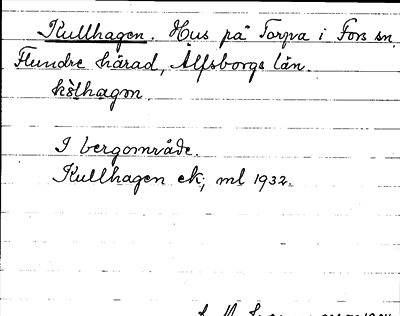 Kullhagen. Hus på Torpa i Fors sn,
Flundre härad, Älfsborgs län.
I bergområde.
Kullhagen ek; ml 1932.